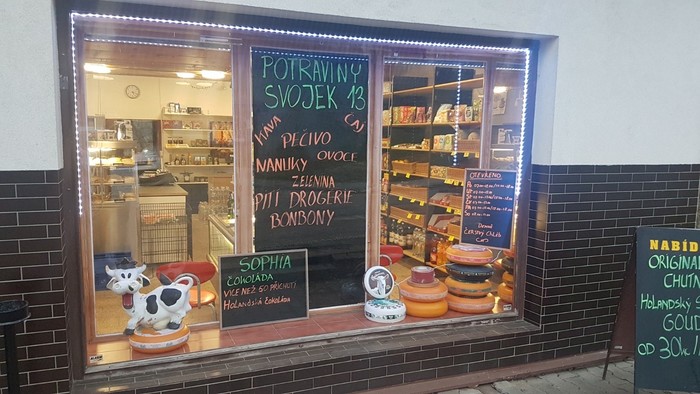 POTRAVINY
SVOJEK 13
KÁVA
ČAJ
PEČIVO
NANUKY OVOCE
ZELENINA
PITÍ DROGERIE
BONBONY
SOPHIA
ČOKOLÁDA
VÍCE NEŽ 50 PŘÍCHUTÍ
HOLANDSKÁ ČOKOLÁDA
OTEVŘENO
ČERSTVÝ CHLÉB
NABÍD
ORIGINÁ
CHUTN
HOLANDSKÝ
GOUD
OD 30